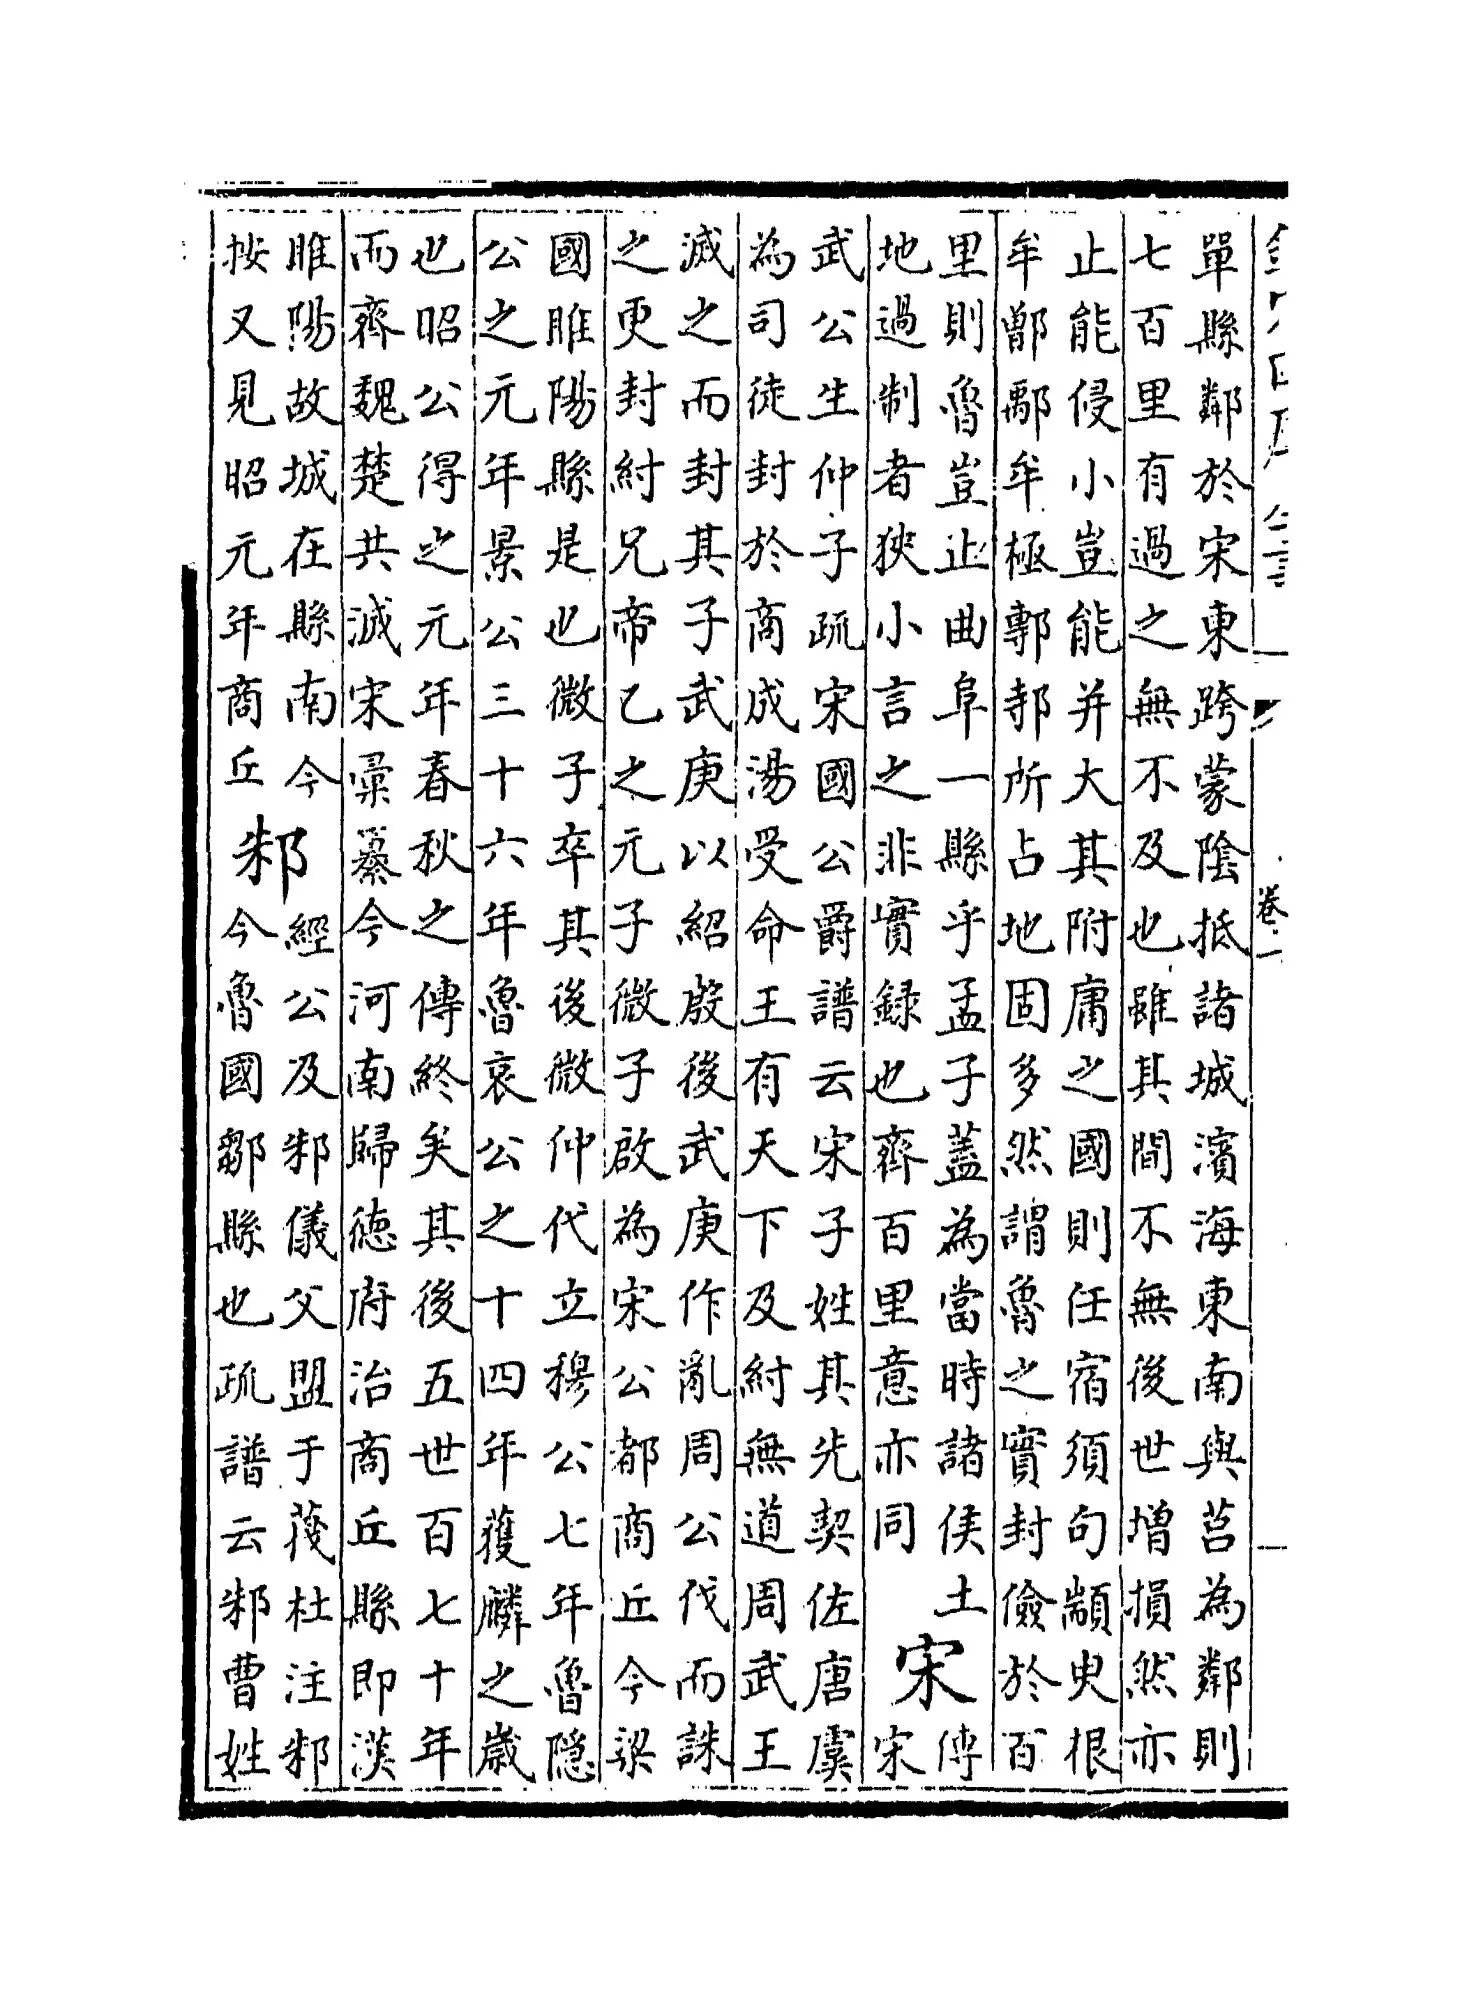 單縣鄰於宋東跨蒙陰抵諸城濱海東南與莒為鄰則
七百里有過之無不及也雖其間不無後世增損然亦
止能侵小豈能并大其附庸之國則任宿須句顓臾根
牟鄫鄅牟極鄟邿所占地固多然謂魯之實封儉於百
里則魯豈止曲阜一縣乎孟子蓋為當時諸侯土
地過制者狹小言之非實録也齊百里意亦同
宋
傳
宋
武公生仲子疏宋國公爵譜云宋子姓其先契佐唐虞
為司徒封於商成湯受命王有天下及紂無道周武王
滅之而封其子武庚以紹殷後武庚作亂周公伐而誅
之更封紂兄帝乙之元子微子啟為宋公都商丘今梁
國睢陽縣是也微子卒其後微仲代立穆公七年魯隱
公之元年景公三十六年魯哀公之十四年獲麟之歲
也昭公得之元年春秋之傳終矣其後五世百七十年
而齊魏楚共滅宋彙纂今河南歸德府治商丘縣即漢
睢陽故城在縣南今
按又見昭元年商丘
邾
經公及邾儀父盟于蔑杜注邾
今魯國鄒縣也疏譜云邾曹姓